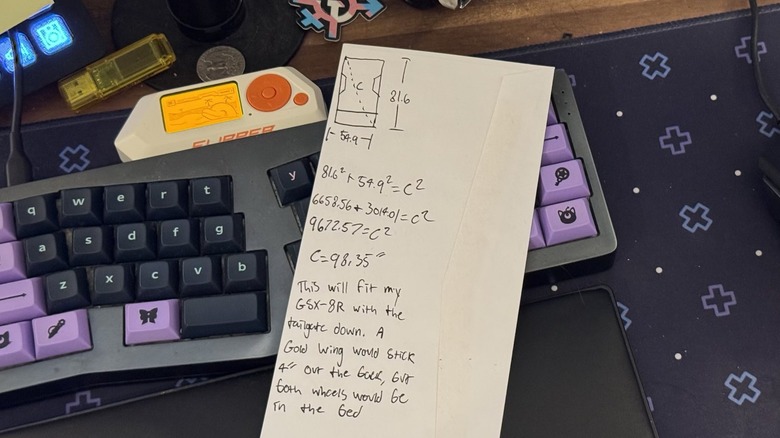 FLIPPER
C
81.6
54.9
81.6² + 54.9² = C²
6658.56 + 3014.01 = C²
9672.57 = C²
C = 98.35"
This will fit my
GSX-8R with the
tailgate down. A
Gold Wing would stick
4" out the back, but
both wheels would be
in the bed
q w e r t
y
a s d f g
z x c v b